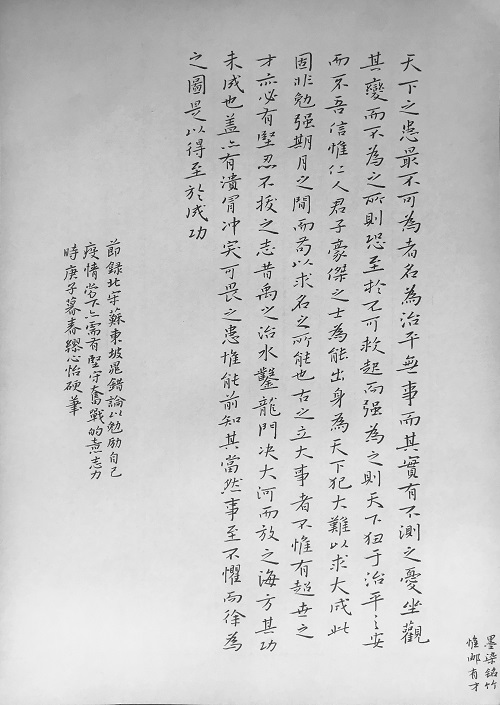 天下之患最不可為者名為治平無事而其實有不測之憂坐觀
其變而不為之所則恐至於不可救起而强為之則天下狃于治平之安
而不吾信惟仁人君子豪傑之士為能出身為天下犯大難以求大成此
固非勉强期月之間而苟以求名之所能也古之立大事者不惟有超世之
才亦必有堅忍不拔之志昔禹之治水鑿龍門决大河而放之海方其功
未成也盖亦有潰冒冲突可畏之患惟能前知其當然事至不懼而徐為
之圖是以得至於成功
節録北宋蘇東坡晁錯論以勉励自己
疫情當下亦需有堅守奮戰的意志力
時庚子暮春繆心怡硬筆
墨染銘竹
惟邮有才